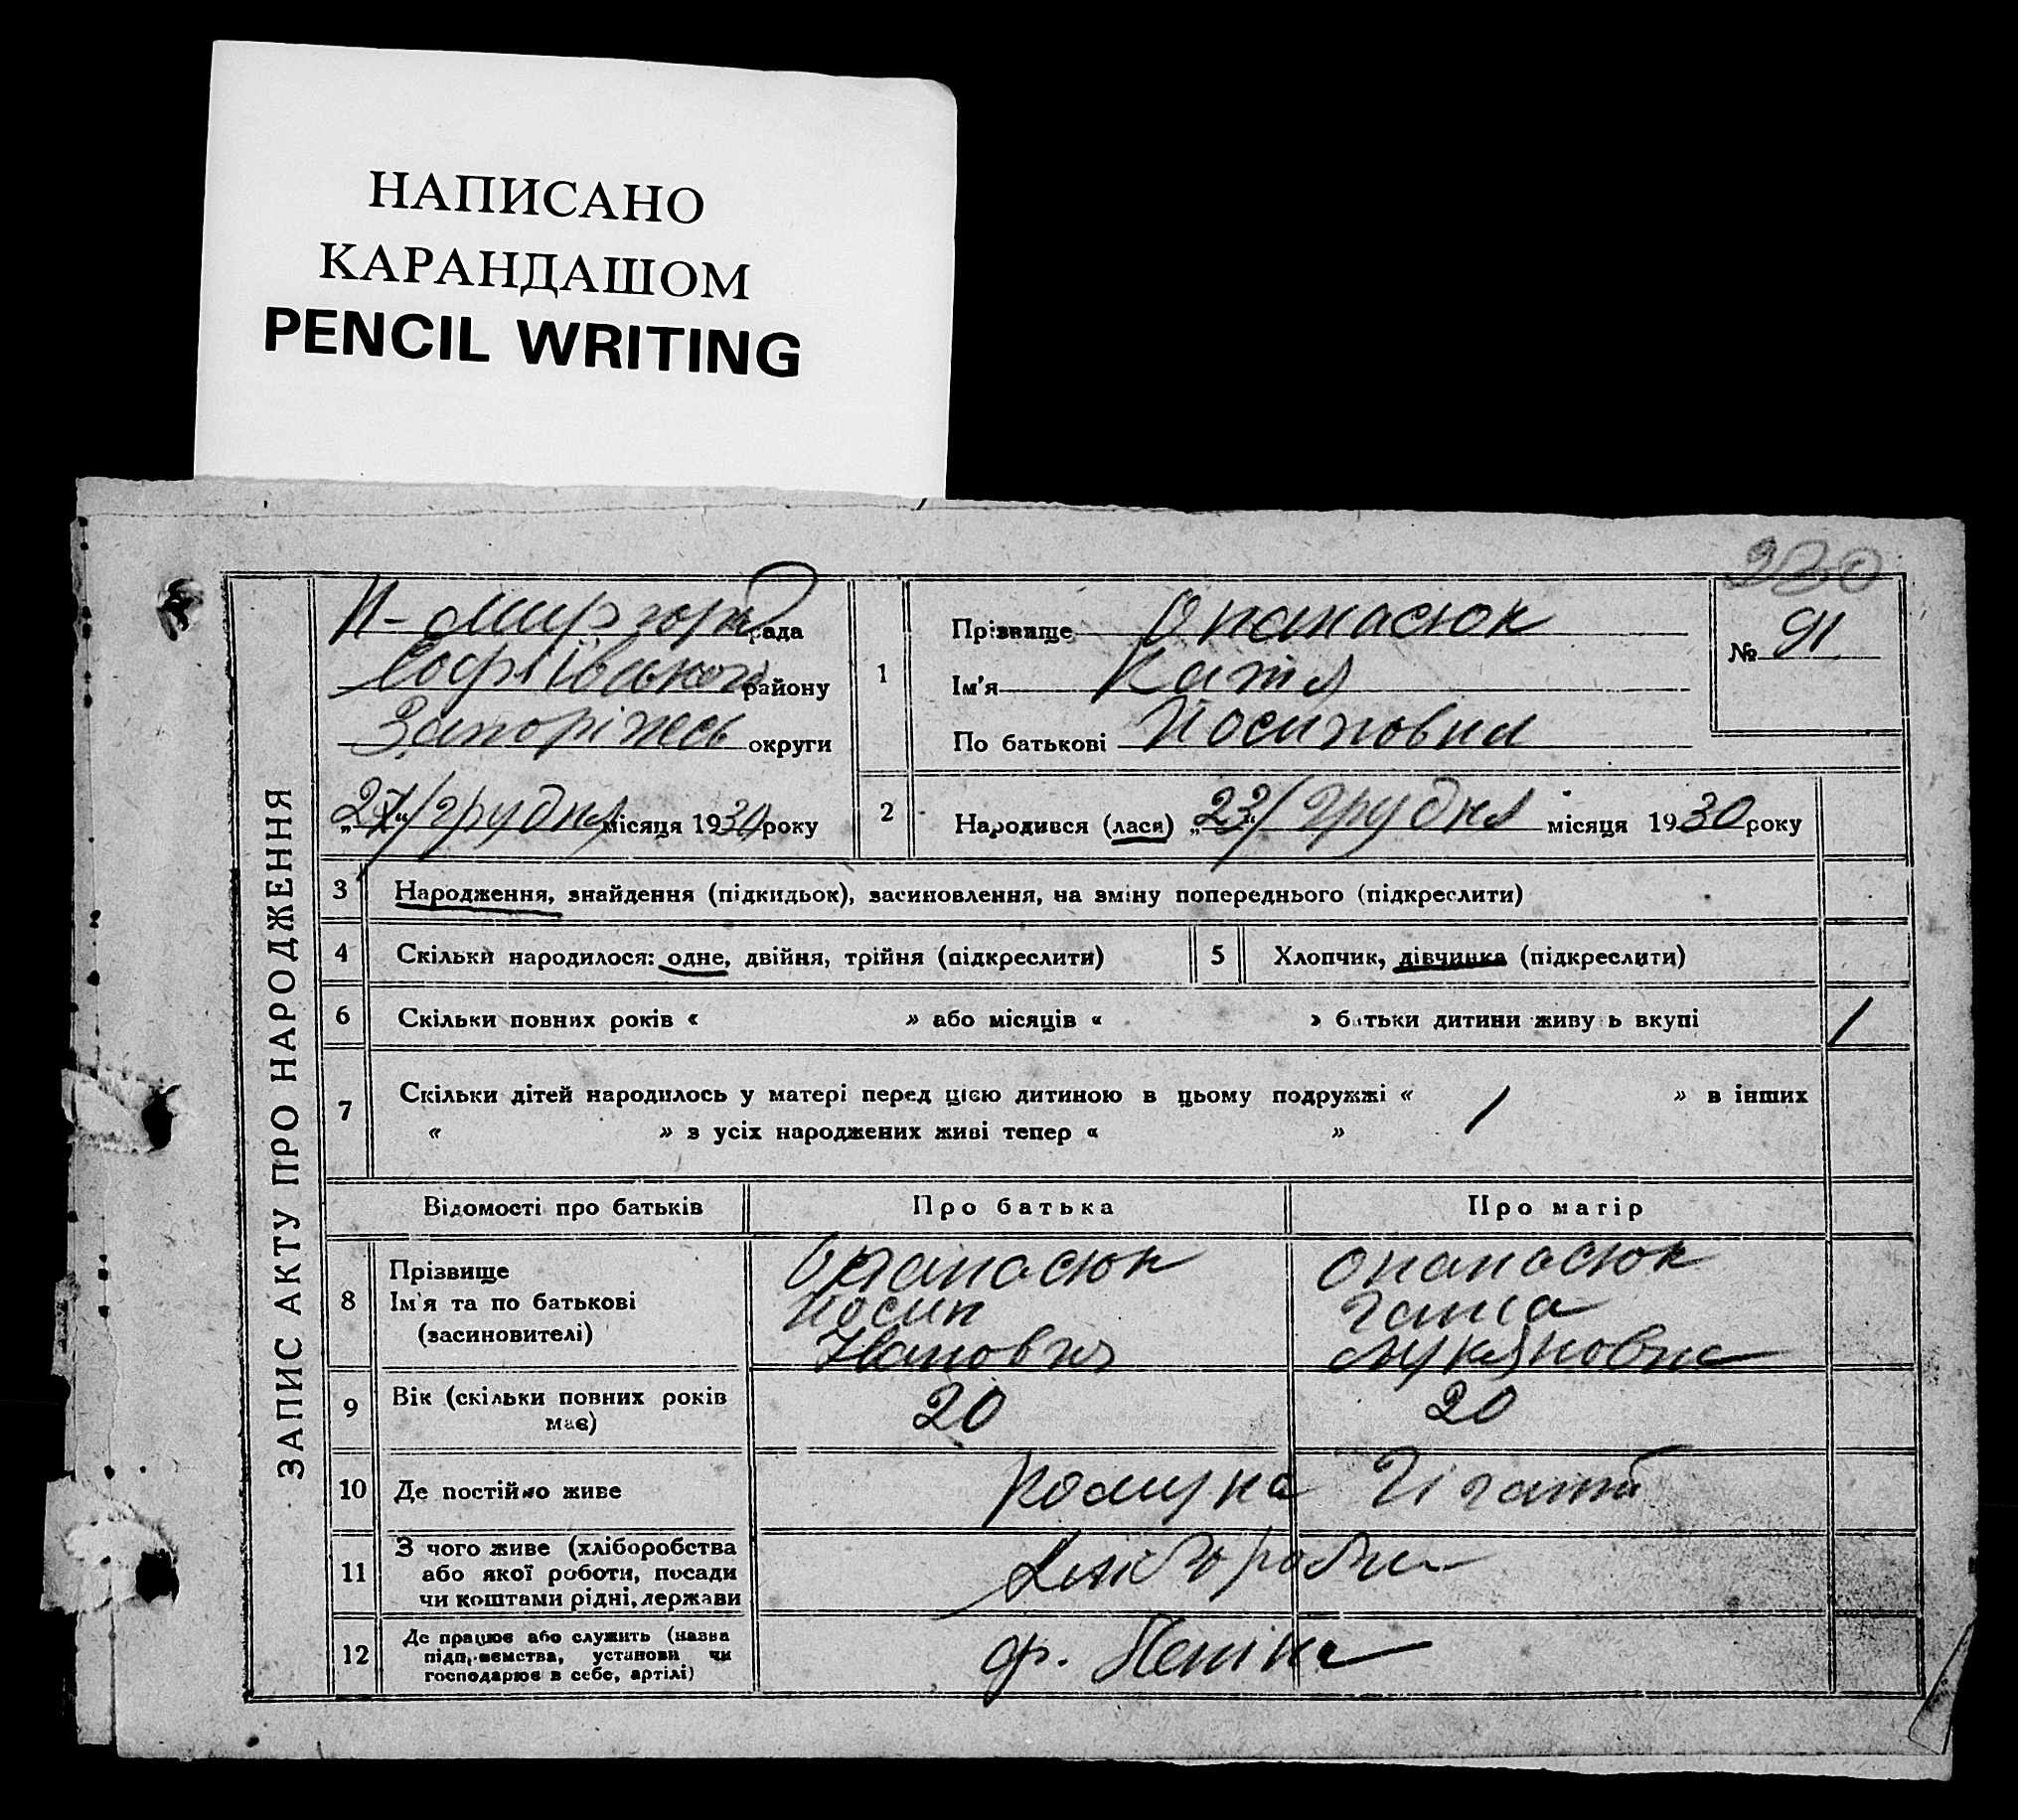 НАПИСАНО
КАРАНДАШОМ
PENCIL WRITING
230
ЗАПИС АКТУ ПРО НАРОДЖЕННЯ
Н-Миргород рада
Софіївського району
Запоріжсь округи
„27“ грудня місяця 1930 року
1
Прізвище Опанасюк
Ім'я Катя
По батькові Йосиповна
№ 91
2
Народився (лася) „23“ Грудня місяця 1930 року
3 Народження, знайдення (підкидьок), засиновлення, на зміну попереднього (підкреслити)
4 Скільки народилося: одне, двійня, трійня (підкреслити)
5 Хлопчик, дівчинка (підкреслити)
6 Скільки повних років « » або місяців « » батьки дитини живуть вкупі /
7 Скільки дітей народилось у матері перед цією дитиною в цьому подружжі « / » в інших
« » з усіх народжених живі тепер « »
Відомості про батьків Про батька Про матір
8
Прізвище
Ім'я та по батькові
(засиновителі)
Опанасюк
Йосип
Иванович
Опанасюк
Ганна
Лукяновна
9 Вік (скільки повних років
має)
20 20
10 Де постійно живе
Комуна Гігант
11
З чого живе (хліборобства
або якої роботи, посади
чи коштами рідні, держави
Хліборобст
12
Де працює або служить (назва
підприємства, установи чи
господарює в себе, артілі)
ф. Леніна